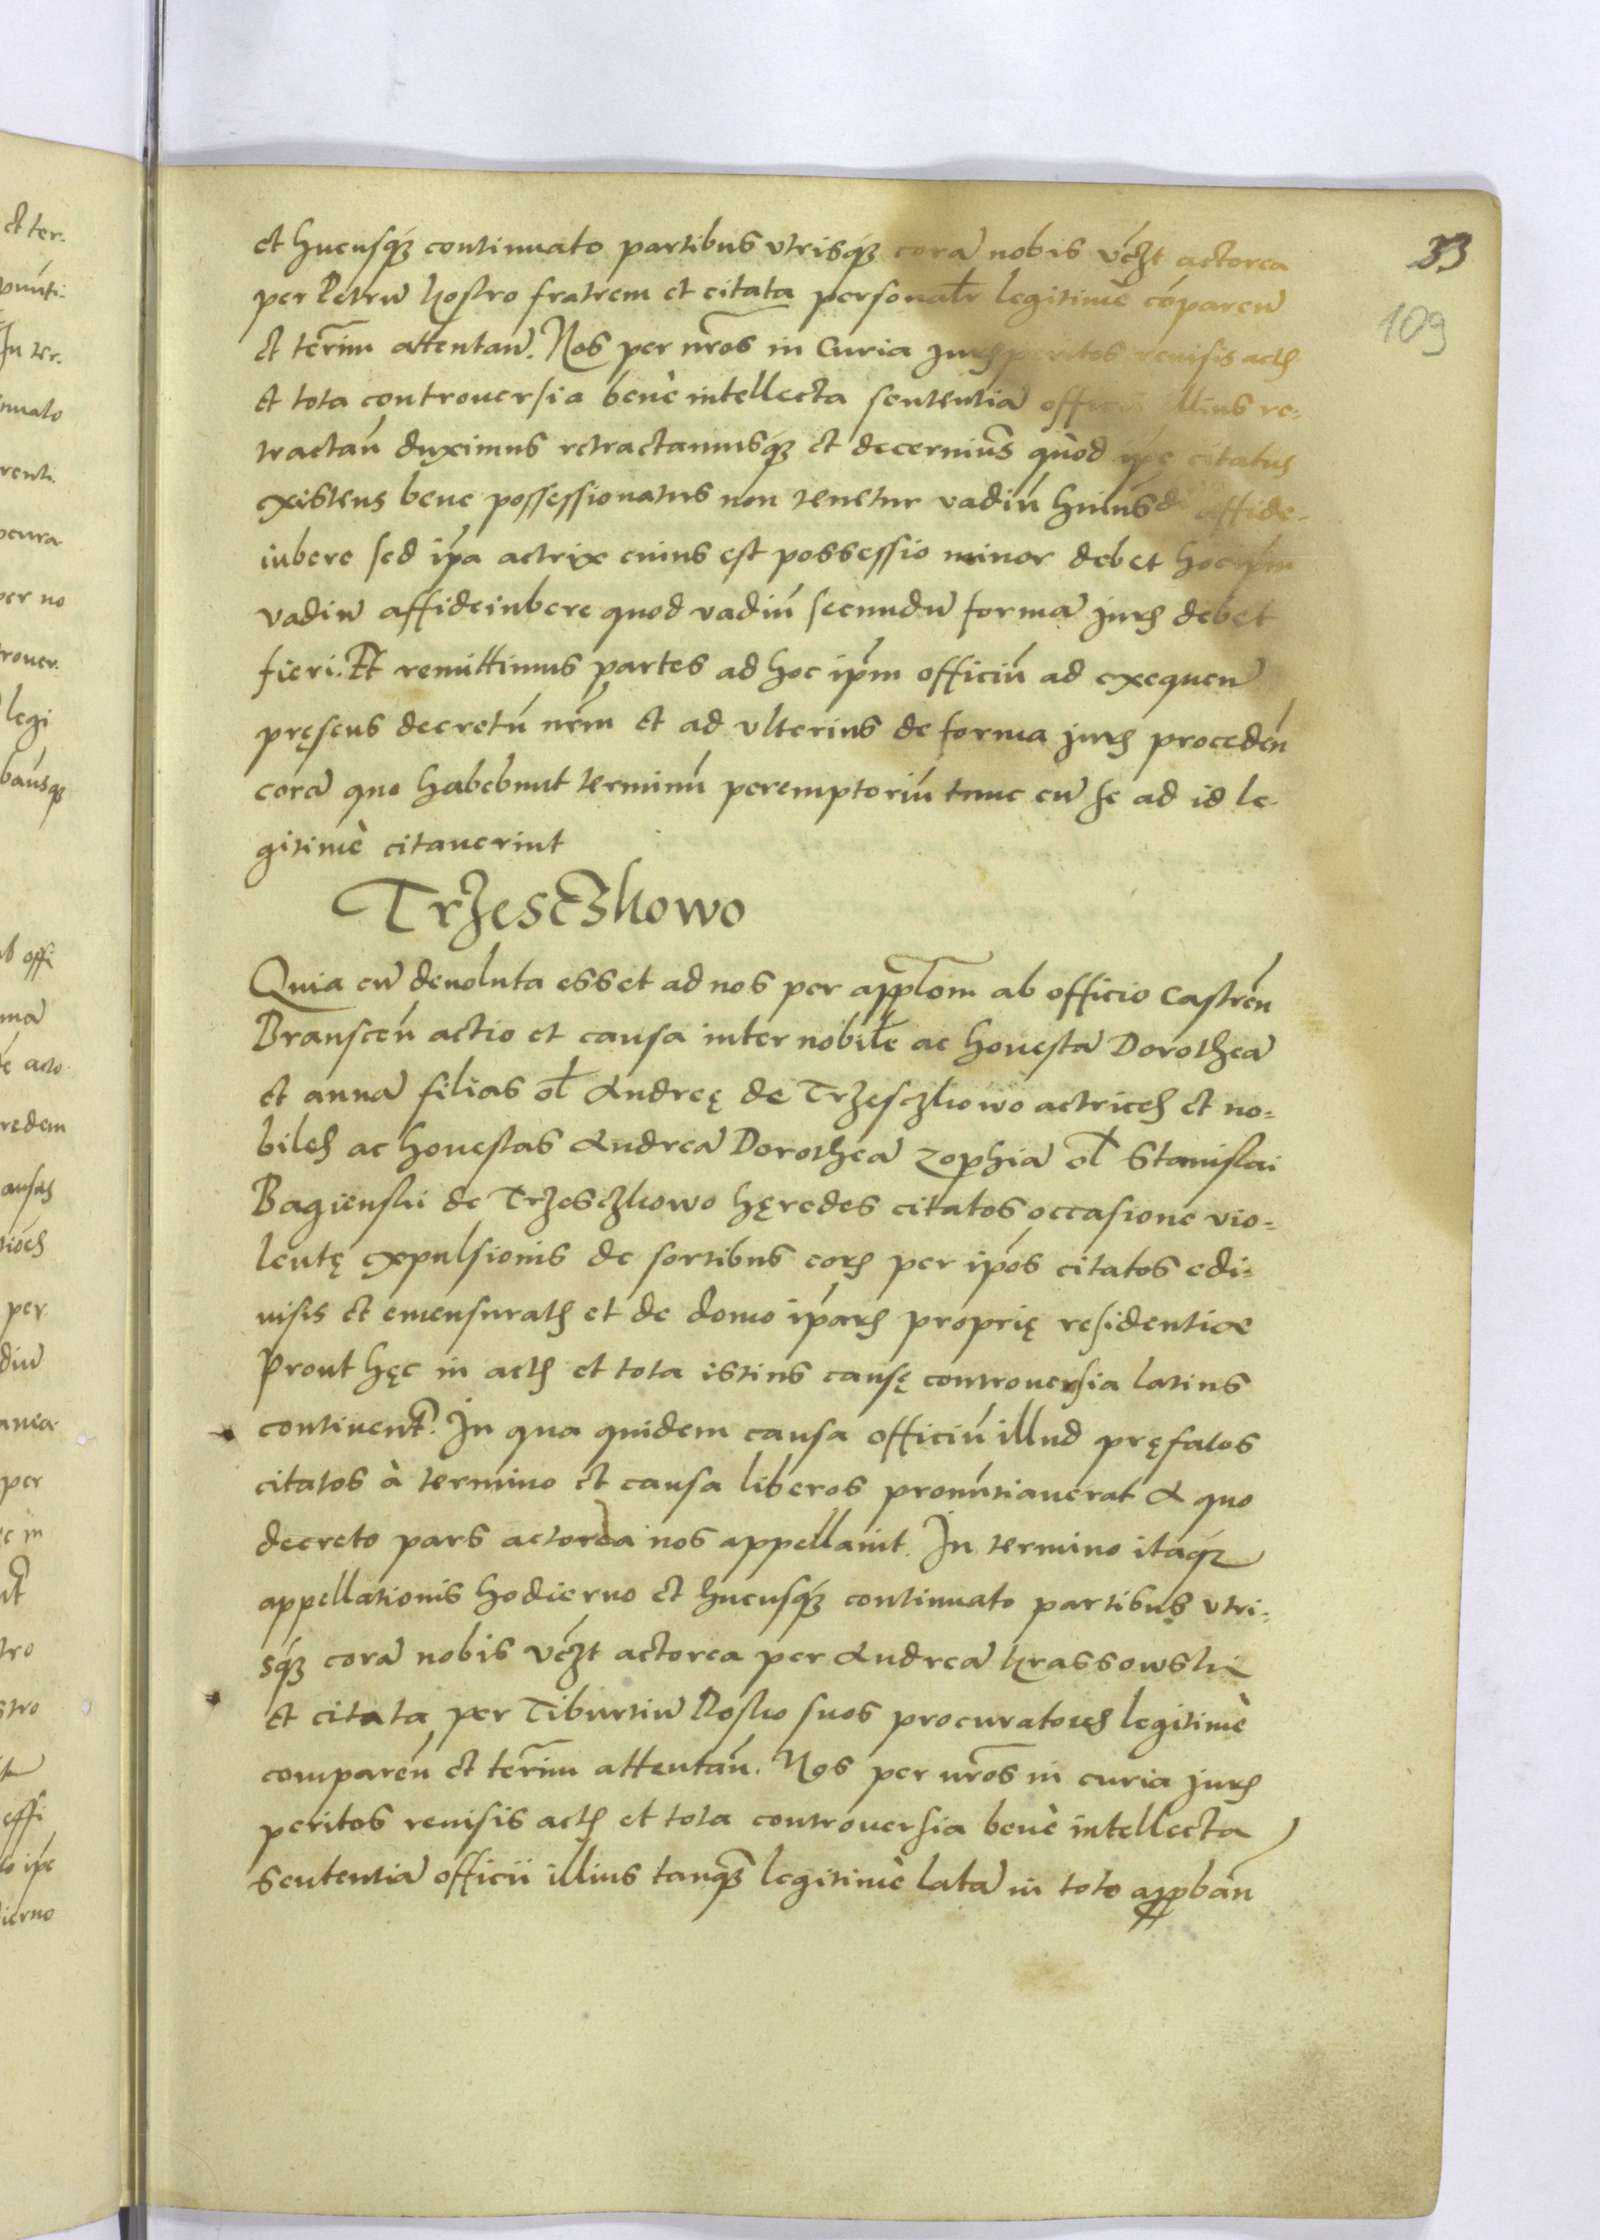 33
109
et hucusq́ꝫ continuato partibus vtrisq́ꝫ corã nobis vcꝫt actorea
per Petrũ kostro fratrem et citata personalr̃ legitimè cóparen̄
et terĩm attentan̄. Nos per nr̃os in Curia juris peritos reuisis actis
et tota controuersia benè intellecta sententiã officii illius re-
tractan̄ duximus retractamusq́ꝫ et decernim̃s quòd ip̃e citatus
existens bene possessionatus non tenetur vadiũ huiusd affide-
iubere sed ip̃a actrix cuius est possessio minor debet hoc ip̃m
vadiũ affideiubere quod vadiũ secundũ formã juris debet
fieri. Et remittimus partes ad hoc ip̃m officiũ ad exequen̄
pręsens decretũ nr̃m et ad vlterius de forma juris proceden̄
corã quo habebunt terminũ peremptoriũ tunc cũ se ad id le-
gitimè citauerint
Trzesczkowo
Quia cũ deuoluta esset ad nos per app̃lom̃ ab officio Castren̄
Branscen̄ actio et causa inter nobile ac honestã Dorotheã
et annã filias ol̃ Andreę de Trzesczkowo actrices et no-
biles ac honestas Andreã Dorotheã Zophiã ol̃ Stanislai
Bagienski de Trzesczkowo hęredes citatos occasione vio-
lentę expulsionis de sortibus eorum per ip̃os citatos edi-
uisis et emensuratis et de domo ip̃arum proprię residentiae
Prout hęc in actis et tota istius causę controuersia latius
continent̃. In qua quidem causa officiũ illud pręfatos
citatos à termino et causa liberos pronúntiauerat A quo
decreto pars actorea nos appellauit. In termino itaq́ꝫ
appellationis hodierno et hucusq́ꝫ continuato partibus vtri-
sq́ꝫ corã nobis vcꝫt actorea per Andreã Krassowski
et citata per Tiburtiũ Kosko suos procuratores legitimè
comparen̄ et terĩm attentan̄. Nos per nr̃os in curia juris
peritos reuisis actis et tota controuersia benè intellecta
sententiã officii illius tanq̃ꝫ legitimè latã in toto appban̄